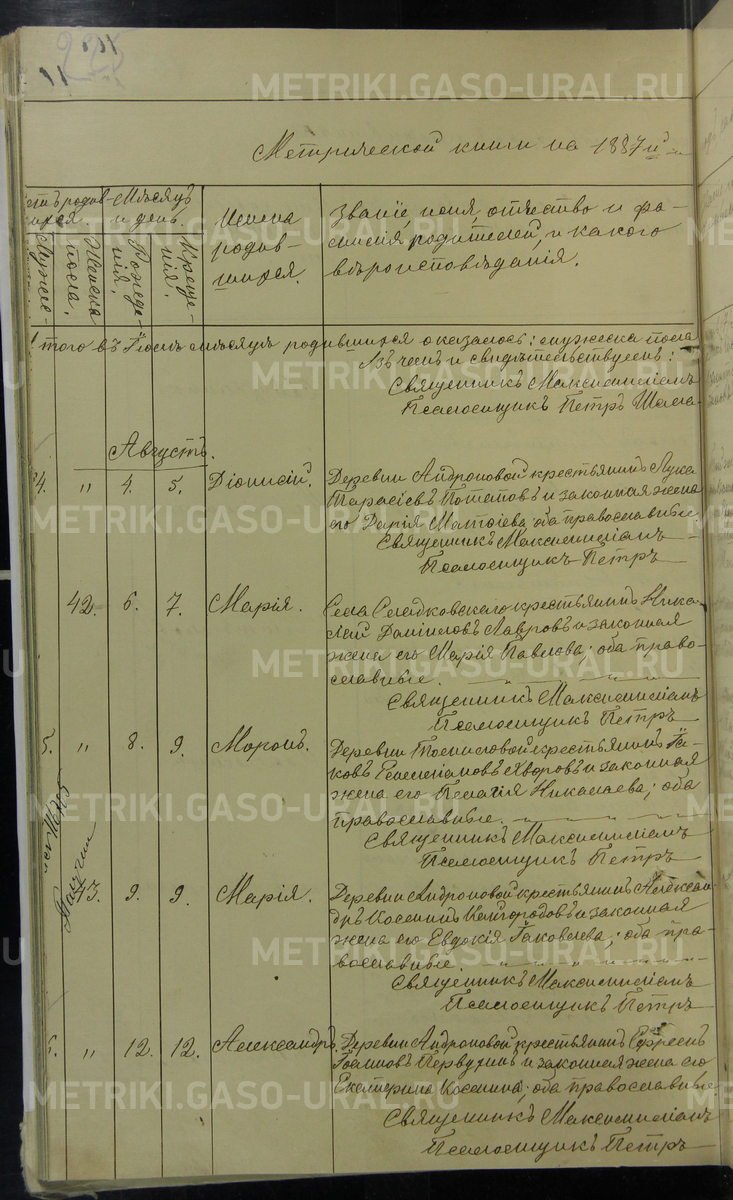 METRIKI.GASO-URAL.RU
11
Метрической книги на 1887й
родив-
шихся.
Мужес-
пола.
Женска
Мѣсяцъ
и день.
Рожде-
нія.
Креще-
нія.
Имена
родив-
шихся.
Званіе, имя, отчество и фа-
милія родителей, и какого
вѣроисповѣданія.
того въ Іюлѣ мѣсяцѣ родившихся оказалось: мужеска пола
въ чемъ и свидѣтельствуемъ:
Священникъ Максимиліанъ
Псаломщикъ Петръ
Августъ.
4. " 4. 5. Діонисій. Деревни Андроновой крестьянинъ Лука
Тарасіевъ Потаповъ и законная жена
его Дарія Матѳіева; оба православные
Священникъ Максимиліанъ
Псаломщикъ Петръ
42. 6. 7. Марія. Села Сладковскаго крестьянинъ Нико-
лай Даниловъ Лавровъ и законная
жена его Марія Павлова; оба право-
славные.
Священникъ Максимиліанъ
Псаломщикъ Петръ
5. " 8. 9. Маронъ. Деревни Томиловой крестьянинъ Іа-
ковъ Емельяновъ Яворовъ и законная
жена его Пелагія Николаева; оба
православные.
Священникъ Максимиліанъ
Псаломщикъ Петръ
3. 9. 9. Марія. Деревни Андроновой крестьянинъ Алексан-
дръ Косминъ Кайгородовъ и законная
жена его Евдокія Іаковлева; оба пра-
вославные.
Священникъ Максимиліанъ
Псаломщикъ Петръ
6. " 12. 12. Александръ. Деревни Андроновой крестьянинъ Ефремъ
Іоанновъ Первухинъ и законная жена его
Екатерина Космина; оба православные.
Священникъ Максимиліанъ
Псаломщикъ Петръ